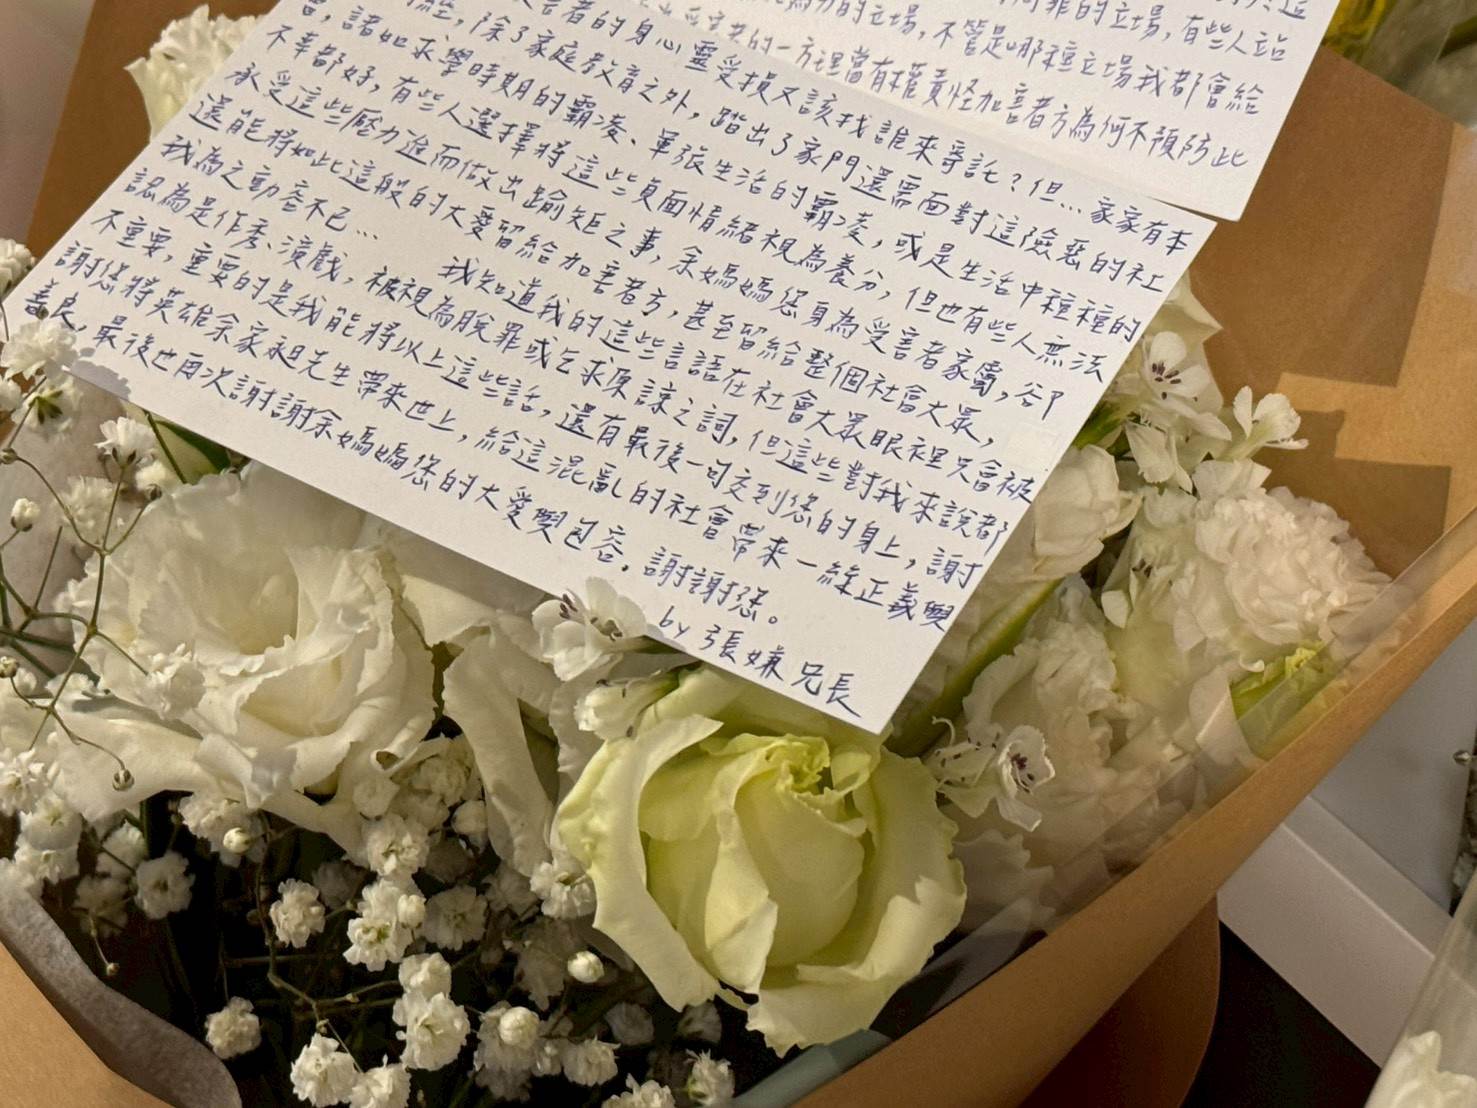 何罪的立場，有些人站
力的立場，不管是哪種立場我都會給
的一方理當有權責怪加害者方為何不預防此
害者的身心靈受損又該找誰來尋託？但…家家有本
，除了家庭教育之外，踏出了家門還需面對這險惡的社
會，諸如求學時期的霸凌、單張生活的霸凌，或是生活中種種的
不幸都好，有些人選擇將這些負面情緒視為養分，但也有些人無法
承受這些壓力進而做出踰矩之事，余媽媽您身為受害者家屬，卻
還能將如此這般的大愛留給加害者方，甚至留給整個社會大眾，
我為之動容不已…　我知道我的這些言語在社會大眾眼裡只會被
認為是作秀、演戲，被視為脫罪或乞求原諒之詞，但這些對我來說都
不重要，重要的是我能將以上這些話，還有最後一句交到您的身上，謝
謝您將英雄余家昶先生帶來世上，給這混亂的社會帶來一線正義與
善良，最後也再次謝謝余媽媽您的大愛與包容，謝謝您。
by 張嫌兄長